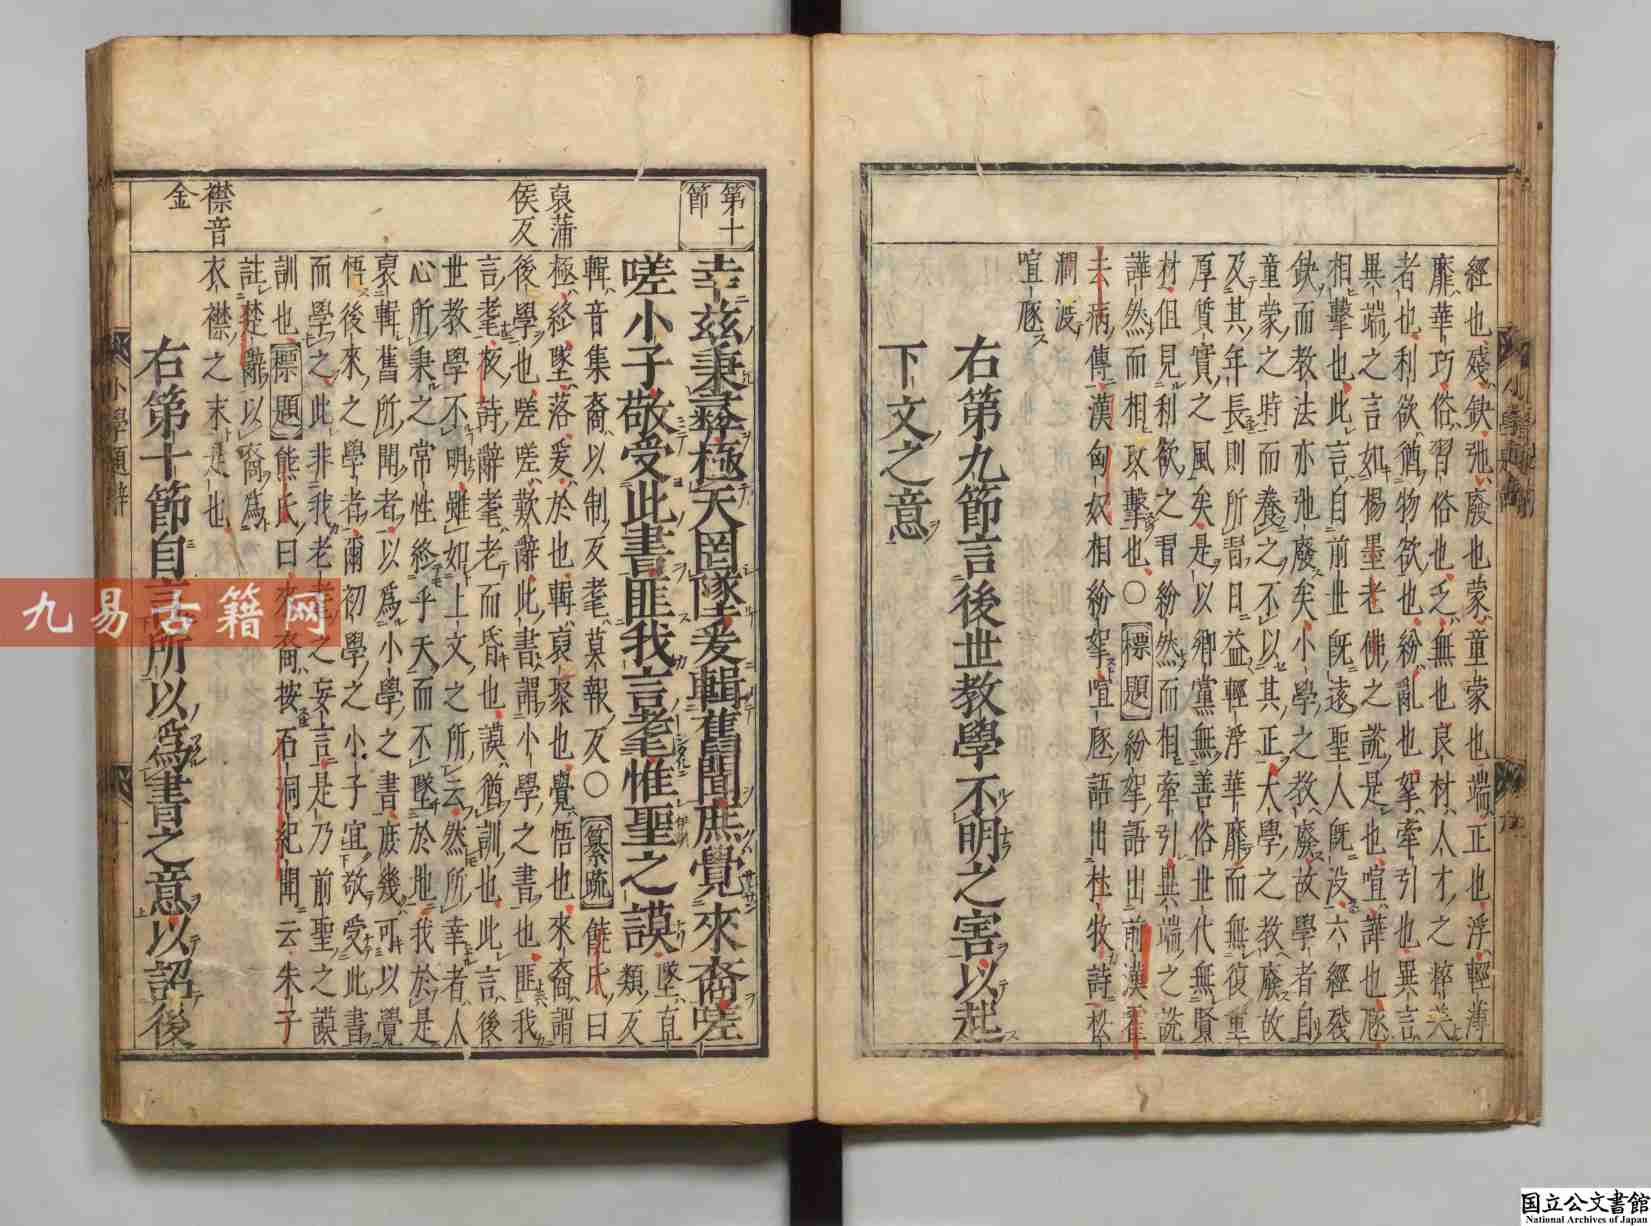 經也殘缺弛廢也蒙童蒙也端正也浮輕薄
靡華巧俗習俗也乏無也良材人才之粹美
者也利欲猶物欲也紛亂也挐牽引也異言
異端之言如楊墨老佛之說是也喧譁也豗
相擊也此言自前世旣遠聖人旣没六經殘
缺而教法亦弛廢矣小學之教廢故學者自
童蒙之時而養之不以其正大學之教廢故
及其年長則所習日益輕浮華靡而無復重
厚質實之風矣是以鄉黨無善俗世代無賢
材但見利欲之習紛然而相牽引異端之說
譁然而相攻擊也○標題紛挐語出前漢霍
去病傳漢匈奴相紛挐喧豗語出杜牧詩松
澗渡
喧豗
右第九節言後世教學不明之害以起
下文之意
小學題辭
第十
節
幸茲秉彝極天罔墜爰輯舊聞庶覺來裔嗟
嗟小子敬受此書匪我言耄惟聖之謨
墜直類反
輯音集裔以制反耄莫報反○纂疏饒氏曰
極終墜落爰於也輯裒聚也覺悟也來裔謂
後學也嗟嗟歎辭此書謂小學之書也匪我
言耄被詩辭耄老而昏也謨猶訓也此言後
世教學不明雖如上文之所云然所幸者人
心所秉之常性終乎天而不墜於地我於是
裒輯舊所聞者以爲小學之書庶幾可以覺
悟後來之學者爾初學之小子宜敬受此書
而學之此非我老耄之妄言是乃前聖之謨
訓也標題熊氏曰來裔按石洞紀聞云朱子
註楚辭以裔爲
衣襟之末是也
右第十節自言所以爲書之意以詔後
裒蒲
侯反
襟音
金
小學題辭
九易古籍网
国立公文書館
National Archives of Japan